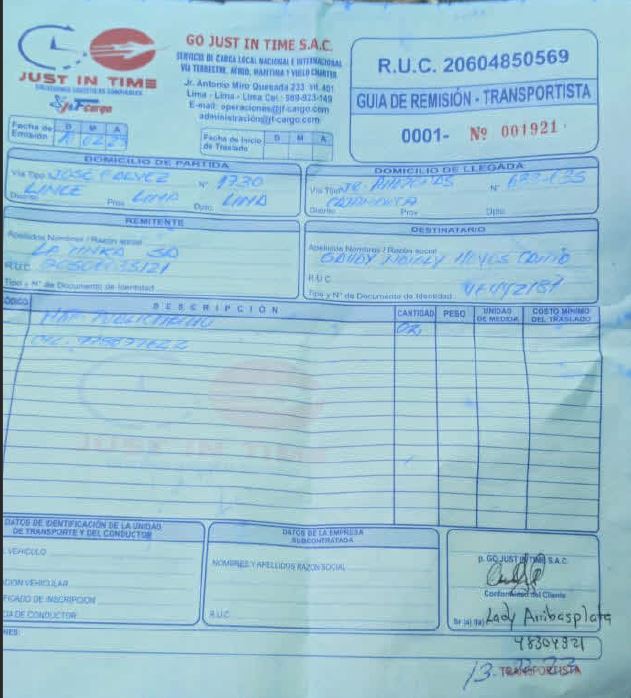 JUST IN TIME
SOLUCIONES LOGÍSTICAS CONFIABLES
jfcargo
GO JUST IN TIME S.A.C.
SERVICIO DE CARGA LOCAL NACIONAL E INTERNACIONAL
VIA TERRESTRE, AÉREO, MARITIMA Y VUELO CHARTER
Jr. Antonio Miro Quesada 233 Int. 401
Lima - Lima - Lima Cel.: 989-923-149
E-mail: operaciones@jf-cargo.com
administración@jf-cargo.com
R.U.C. 20604850569
GUIA DE REMISIÓN - TRANSPORTISTA
0001- Nº 001921
Fecha de Emisión D M A
02
Fecha de Inicio de Traslado D M A
DOMICILIO DE PARTIDA
Via Tipo JOSE GALVEZ Nº 1730
Distrito LINCE Prov. LIMA Dpto. LIMA
DOMICILIO DE LLEGADA
Via Tipo JR. AMAZONAS Nº
Distrito CAJAMARCA Prov. Dpto.
REMITENTE
Apellidos Nombres / Razón social
LA TINKA SA
R.U.C.
Tipo y N° de Documento de Identidad
DESTINATARIO
Apellidos Nombres / Razón social
R.U.C.
Tipo y N° de Documento de Identidad
CÓDIGO DESCRIPCIÓN CANTIDAD PESO UNIDAD DE MEDIDA COSTO MÍNIMO DEL TRASLADO
MAT. PUBLICITARIO
JUST IN TIME
DATOS DE IDENTIFICACIÓN DE LA UNIDAD
DE TRANSPORTE Y DEL CONDUCTOR
VEHICULO
CION VEHICULAR
FICADO DE INSCRIPCION
CIA DE CONDUCTOR
DATOS DE LA EMPRESA
SUBCONTRATADA
NOMBRES Y APELLIDOS RAZON SOCIAL
R.U.C.
p. GO JUST IN TIME S.A.C.
Conformidad del Cliente
Sr.(a) (ta) Lady Arribasplata
48304921
NES:
TRANSPORTISTA